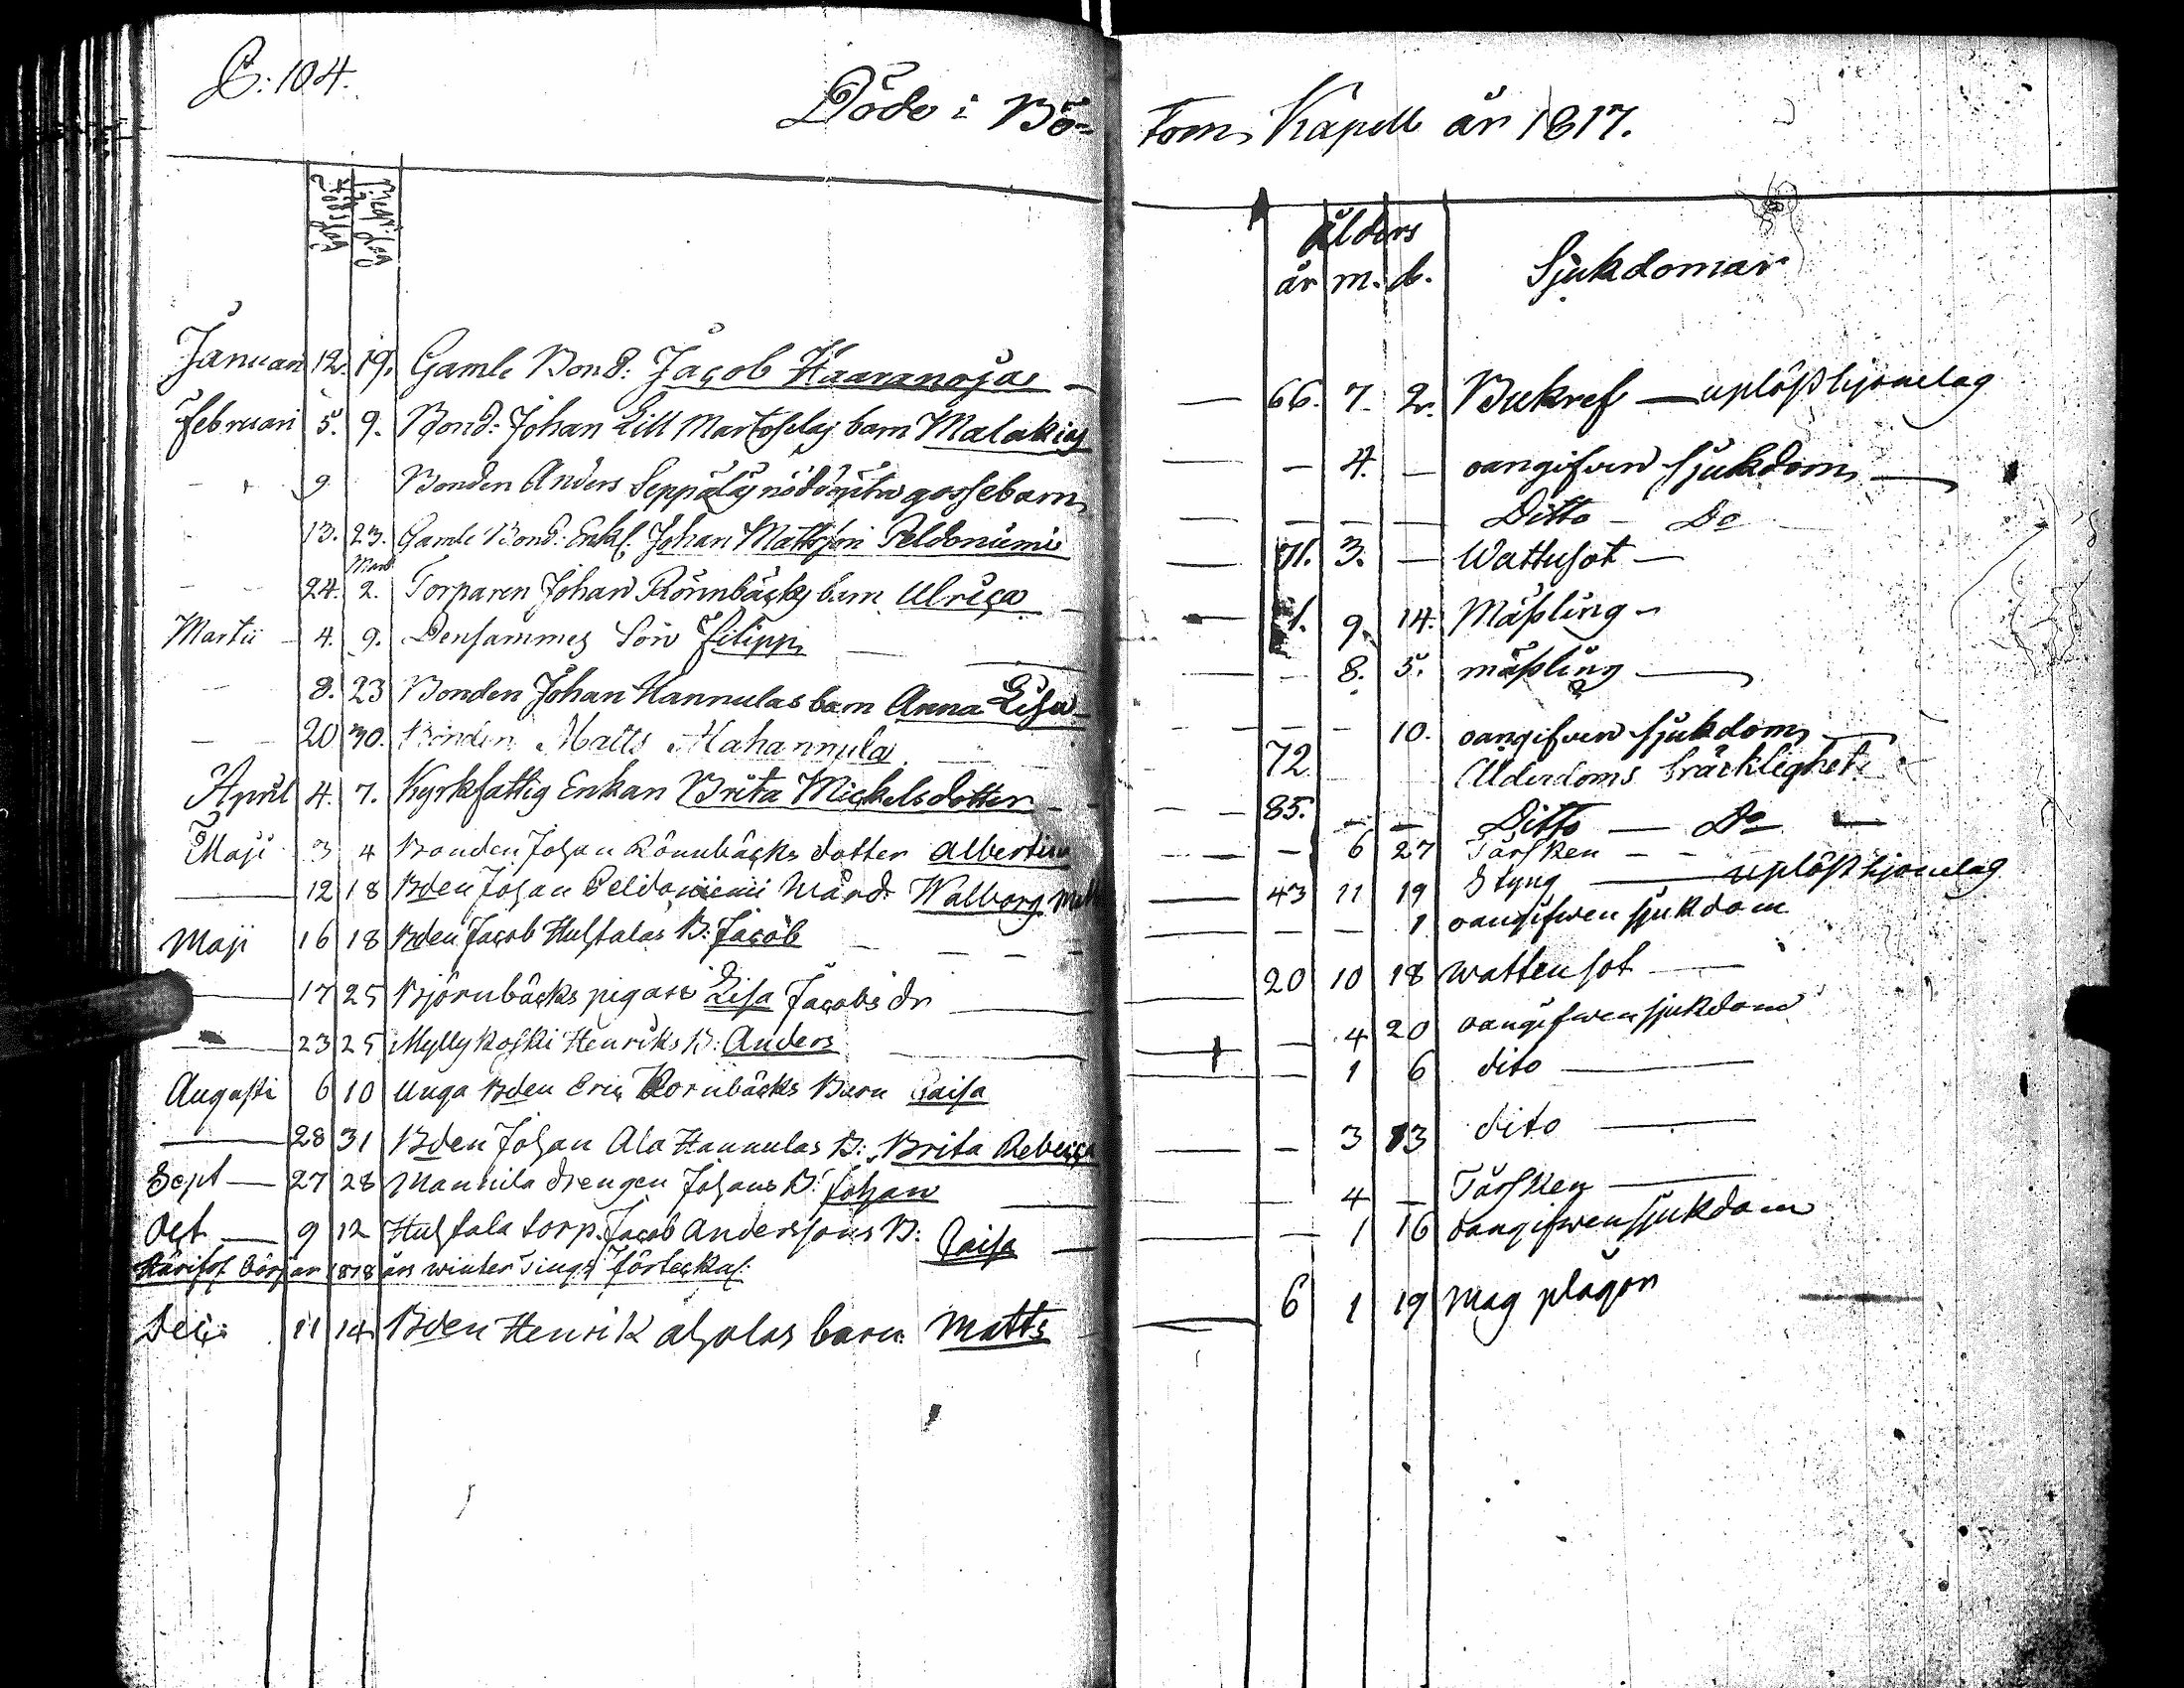 104.
Döde i Bö= tom Kapell år 1817.
Död: dag Begr: dag
ålders
år m. d. Sjukdomar
Januari 12. 19. Gamle Bond: Jacob Haaranojas — 66. 7. 2. Bukref — uplöst hjonelag
Februari 5. 9. Bond: Johan Lill Martoselas barn Malakias — — 4. — oangifven sjukdom
9 Bonden Anders Seppäläs nöddöpta gossebarn — — — — Ditto — Do
13. 23. Gamle Bond: Enkl. Johan Mattsson Peldoniemi — 71. 3. — Wattusot —
24. Mart 2. Torparen Johan Rönnbäcks barn Ulrica — 1. 9. 14. Mässling —
Martii 4. 9. Densammes Son Filipp — — 8. 5. mässling —
8. 23 Bonden Johan Hannulas barn Anna Lisa — — — 10. oangifven sjukdom
20 30. Bonden Matts Mahannula. 72 Ålderdoms bräcklighet
April 4. 7. Kyrkfattig Enkan Brita Mickelsdotter — 85. — — Ditto — Do —
Maji 3 4 Bonden Johan Rönnbäcks dotter Albertina — — 6 27 Torsken — —
— 12 18 Bden Johan Peldoniemi Wärd. Walborg — 43 11 19 Styng — uplöst hjonelag
Maji 16 18 Bden Jacob Huhtalas B: Jacob — — — 1 oangifwen sjukdom
— 17 25 Björnbäcks pigan Lisa Jacobs dr — 20 10 18 wattensot —
— 23 25 Myllykoski Henriks B: Anders — — 4 20 oangifwen sjukdom
Augusti 6 10 Unga Bden Eric Kornbäcks Barn Caisa — — 1 6 dito —
— 28 31 Bden Johan Ala Hannulas B: Brita Rebecca — — 3 13 dito —
Sept — 27 28 Mannila drengen Johans B: Johan — — 4 — Torsken —
Oct — 9 12 Huhtala torp. Jacob Anderssons B: Caisa — — 1 16 oangifwen sjukdom
börjar 1818 års winter Tings förteckn:
Dec: 11 14 Bden Henrik aholas barn Matts — 6 1 19 Mag plågor